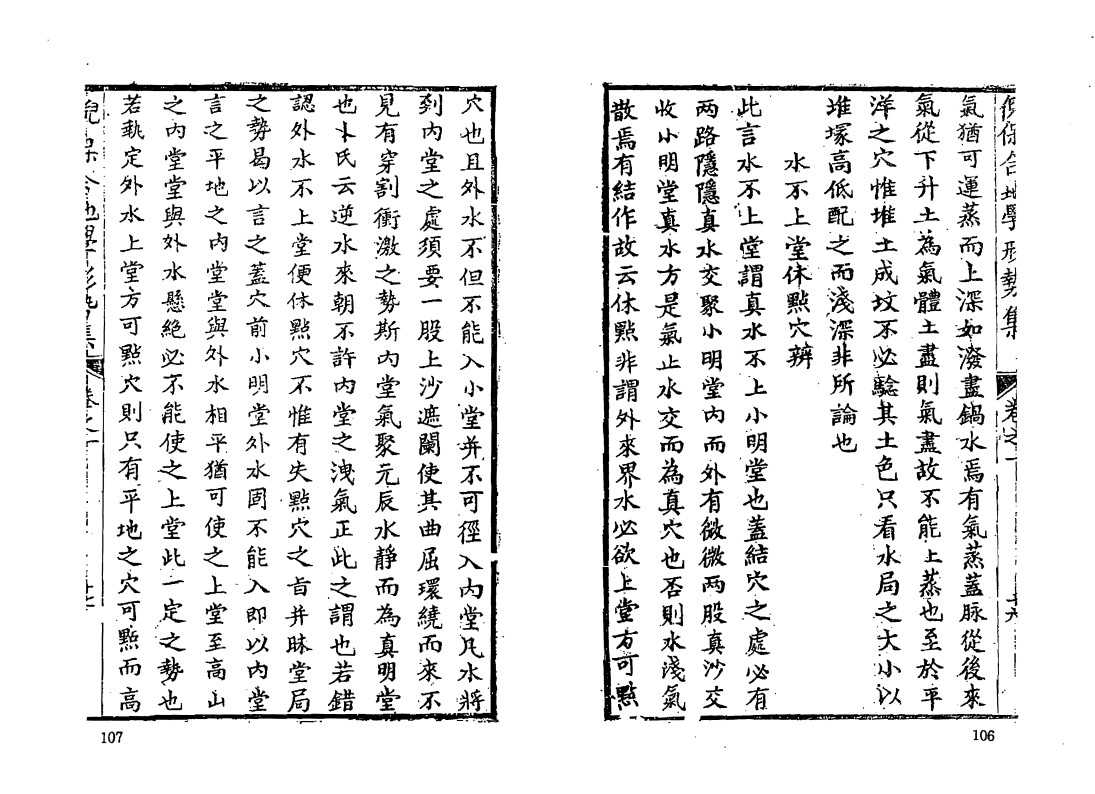 倪保合地學形勢集
卷之一
十六
氣猶可運蒸而上深如潑盡鍋水焉有氣蒸蓋脉從後來
氣從下升土為氣體土盡則氣盡故不能上蒸也至於平
洋之穴惟堆土成坟不必驗其土色只看水局之大小以
堆塚高低配之而淺深非所論也
水不上堂休點穴辨
此言水不上堂謂真水不上小明堂也蓋結穴之處必有
兩路隱隱真水交聚小明堂內而外有微微兩股真沙交
收小明堂真水方是氣止水交而為真穴也否則水淺氣
散焉有結作故云休點非謂外來界水必欲上堂方可點
106
穴也且外水不但不能入小堂并不可徑入內堂凡水將
到內堂之處須要一股上沙遮闌使其曲屈環繞而來不
見有穿割衝激之勢斯內堂氣聚元辰水靜而為真明堂
也卜氏云逆水來朝不許內堂之洩氣正此之謂也若錯
認外水不上堂便休點穴不惟有失點穴之旨并昧堂局
之勢曷以言之蓋穴前小明堂外水固不能入即以內堂
言之平地之內堂堂與外水相平猶可使之上堂至高山
之內堂堂與外水懸絕必不能使之上堂此一定之勢也
若執定外水上堂方可點穴則只有平地之穴可點而高
卷之一
十七
107